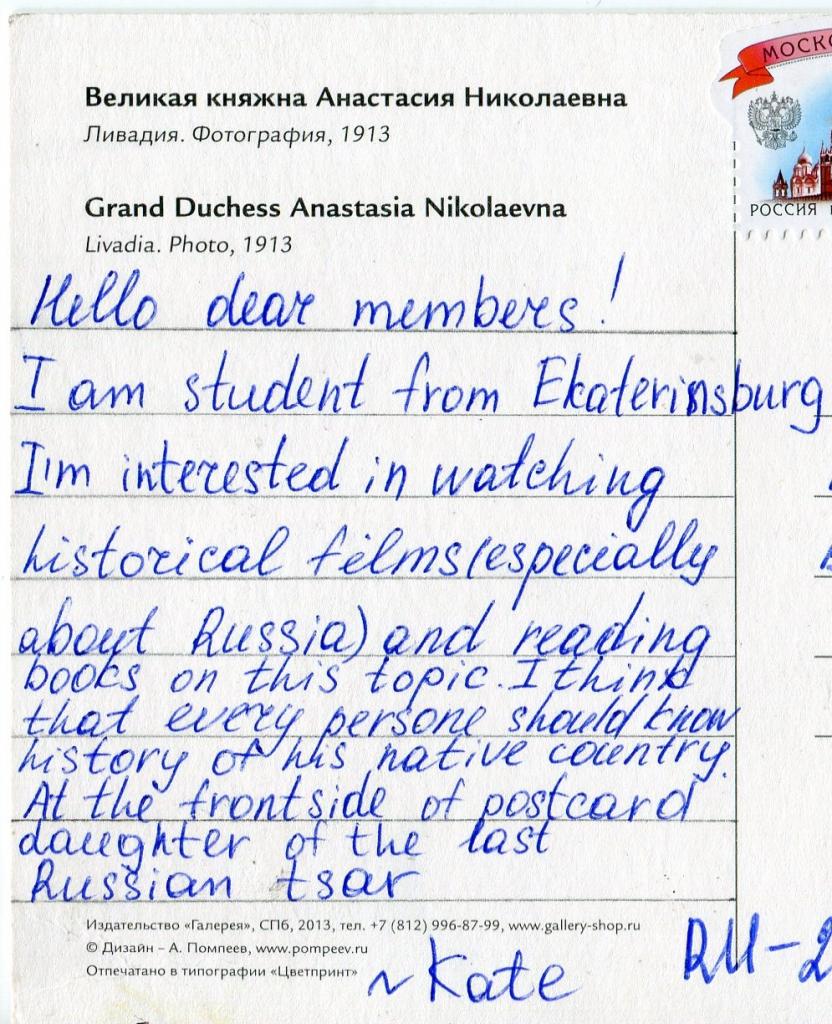 МОСКО
РОССИЯ
Великая княжна Анастасия Николаевна
Ливадия. Фотография, 1913
Grand Duchess Anastasia Nikolaevna
Livadia. Photo, 1913
Hello dear members!
I am student from Ekaterinsburg
I'm interested in watching
historical films (especially
about Russia) and reading
books on this topic. I think
that every persone should know
history of his native country.
At the frontside of postcard
daughter of the last
Russian tsar
Издательство «Галерея», СПб, 2013, тел. +7 (812) 996-87-99, www.gallery-shop.ru
© Дизайн – А. Помпеев, www.pompeev.ru
Отпечатано в типографии «Цветпринт»
~ Kate
RU-2